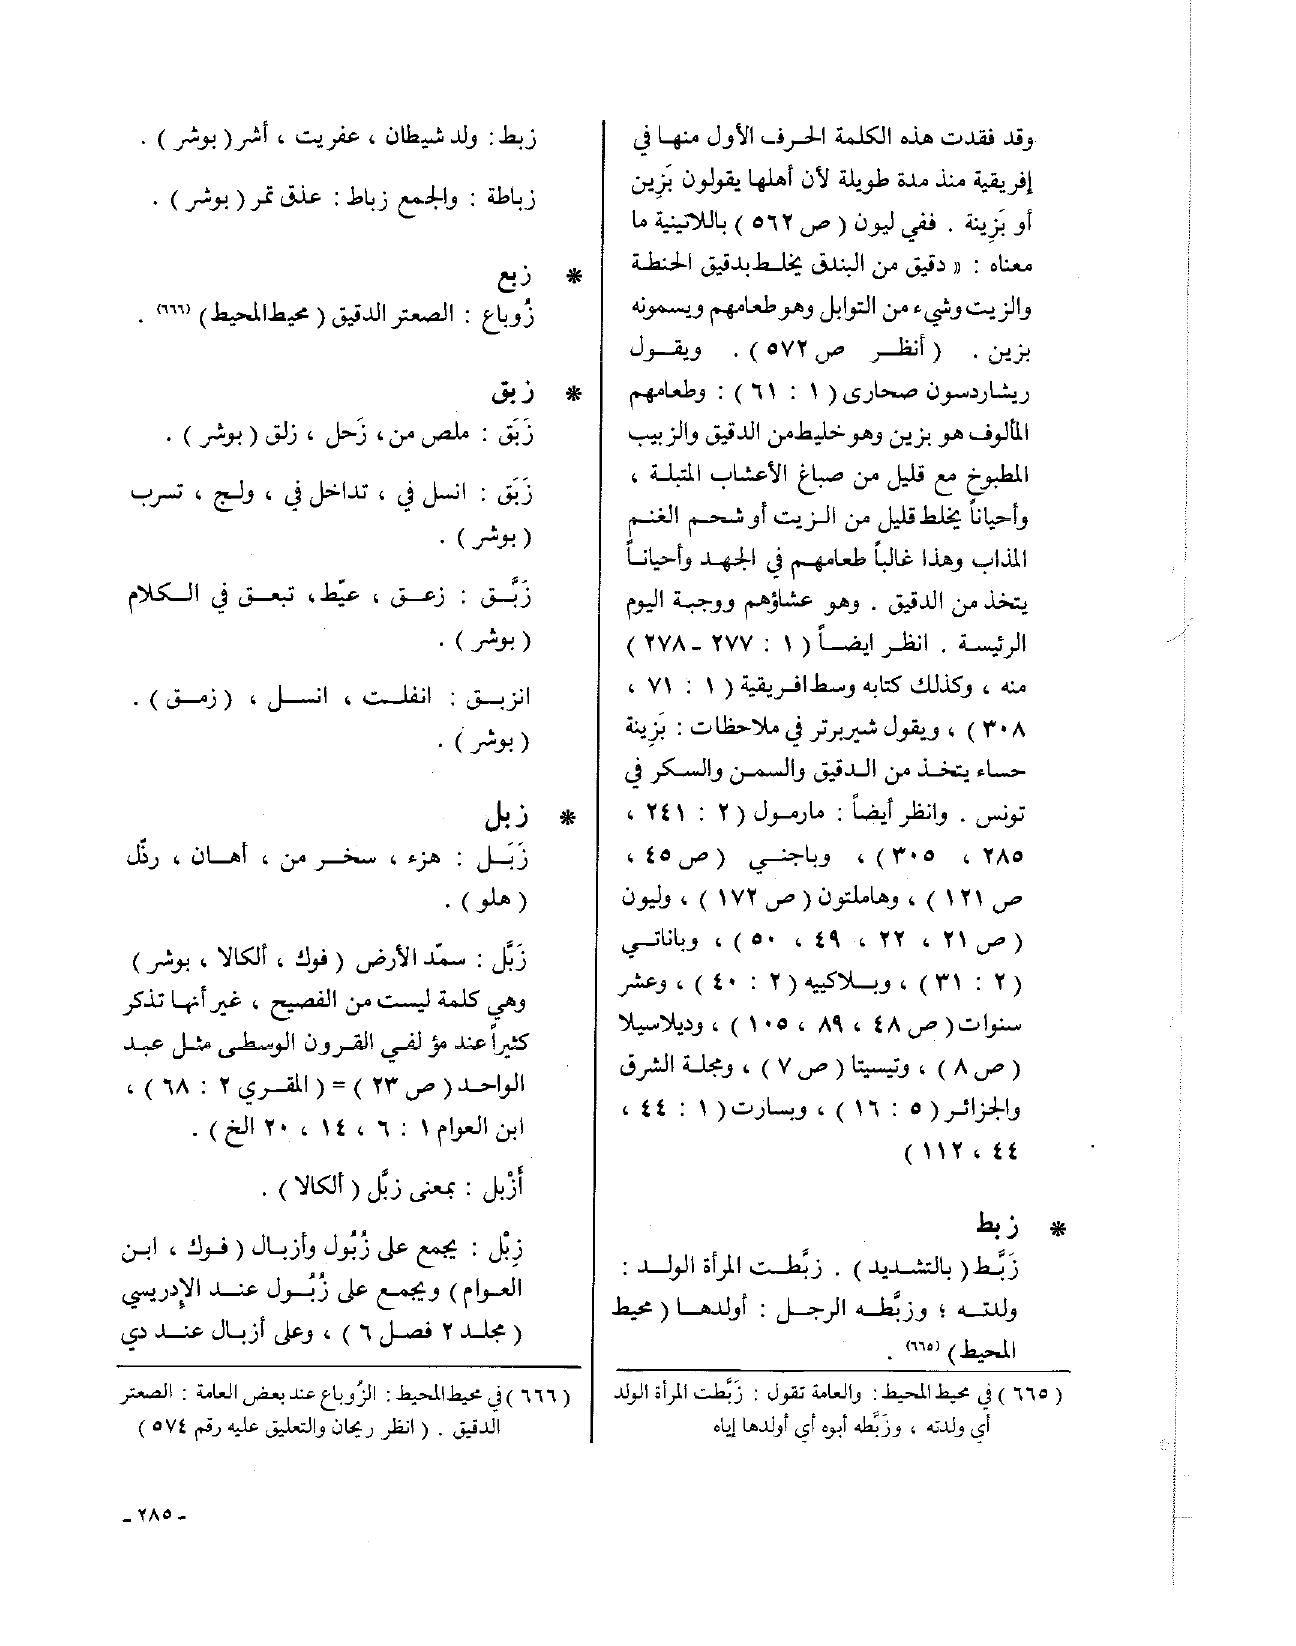 وقد فقدت هذه الكلمة الحرف الأول منها في
إفريقية منذ مدة طويلة لأن أهلها يقولون بَزِين
أو بَزِينة . ففي ليون ( ص ٥٦٢ ) باللاتينية ما
معناه : « دقيق من البندق يخلط بدقيق الحنطة
والزيت وشيء من التوابل وهو طعامهم ويسمونه
بزين . ( أنظر ص ٥٧٢ ) . ويقول
ريشاردسون صحارى ( ١ : ٦١ ) : وطعامهم
المألوف هو بزين وهو خليط من الدقيق والزبيب
المطبوخ مع قليل من صباغ الأعشاب المتبلة ،
وأحياناً يخلط قليل من الزيت أو شحم الغنم
المذاب وهذا غالباً طعامهم في الجهد وأحياناً
يتخذ من الدقيق . وهو عشاؤهم ووجبة اليوم
الرئيسة . انظر ايضاً ( ١ : ٢٧٧ - ٢٧٨ )
منه ، وكذلك كتابه وسط افريقية ( ١ : ٧١ ،
٣٠٨ ) ، ويقول شيربرتر في ملاحظات : بَزِينة
حساء يتخذ من الدقيق والسمن والسكر في
تونس . وانظر أيضاً : مارمول ( ٢ : ٢٤١ ،
٢٨٥ ، ٣٠٥ ) ، وباجني ( ص ٤٥ ،
ص ١٢١ ) ، وهاملتون ( ص ١٧٢ ) ، وليون
( ص ٢١ ، ٢٢ ، ٤٩ ، ٥٠ ) ، وباناتي
( ٢ : ٣١ ) ، وبلاكييه ( ٢ : ٤٠ ) ، وعشر
سنوات ( ص ٤٨ ، ٨٩ ، ١٠٥ ) ، وديلاسيلا
( ص ٨ ) ، وتيسيتا ( ص ٧ ) ، ومجلة الشرق
والجزائر ( ٥ : ١٦ ) ، وبسارت ( ١ : ٤٤ ،
٤٤ ، ١١٢ )
* زبط
زَبَّط ( بالتشديد ) . زبَّطت المرأة الولد :
ولدته ؛ وزبَّطه الرجل : أولدها ( محيط
المحيط ) (٦٦٥) .
( ٦٦٥ ) في محيط المحيط : والعامة تقول : زَبَّطت المرأة الولد
أي ولدته ، وزبَّطه أبوه أي أولدها إياه
زبط : ولد شيطان ، عفريت ، أشر ( بوشر ) .
زباطة : والجمع زباط : عذق تمر ( بوشر ) .
* زبع
زُوباع : الصعتر الدقيق ( محيط المحيط ) (٦٦٦) .
* زبق
زَبَق : ملص من ، زَحل ، زلق ( بوشر ) .
زَبَق : انسل في ، تداخل في ، ولج ، تسرب
( بوشر ) .
زَبَّق : زعق ، عيّط ، تبعق في الكلام
( بوشر ) .
انزبق : انفلت ، انسل ، ( زمق ) .
( بوشر ) .
* زبل
زَبَل : هزء ، سخر من ، أهان ، رذّل
( هلو ) .
زَبَّل : سمّد الأرض ( فوك ، ألكالا ، بوشر )
وهي كلمة ليست من الفصيح ، غير أنها تذكر
كثيراً عند مؤلفي القرون الوسطى مثل عبد
الواحد ( ص ٢٣ ) = ( المقري ٢ : ٦٨ ) ،
ابن العوام ١ : ٦ ، ١٤ ، ٢٠ الخ ) .
أَزْبل : بمعنى زبَّل ( ألكالا ) .
زِبْل : يجمع على زُبُول وأزبال ( فوك ، ابن
العوام ) ويجمع على زُبُول عند الإدريسي
( مجلد ٢ فصل ٦ ) ، وعلى أزبال عند دي
( ٦٦٦ ) في محيط المحيط : الزُوباع عند بعض العامة : الصعتر
الدقيق . ( انظر ريحان والتعليق عليه رقم ٥٧٤ )
- ٢٨٥ -